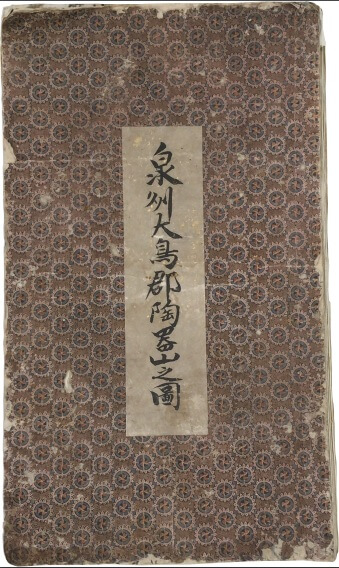 泉州大鳥郡陶器山之圖